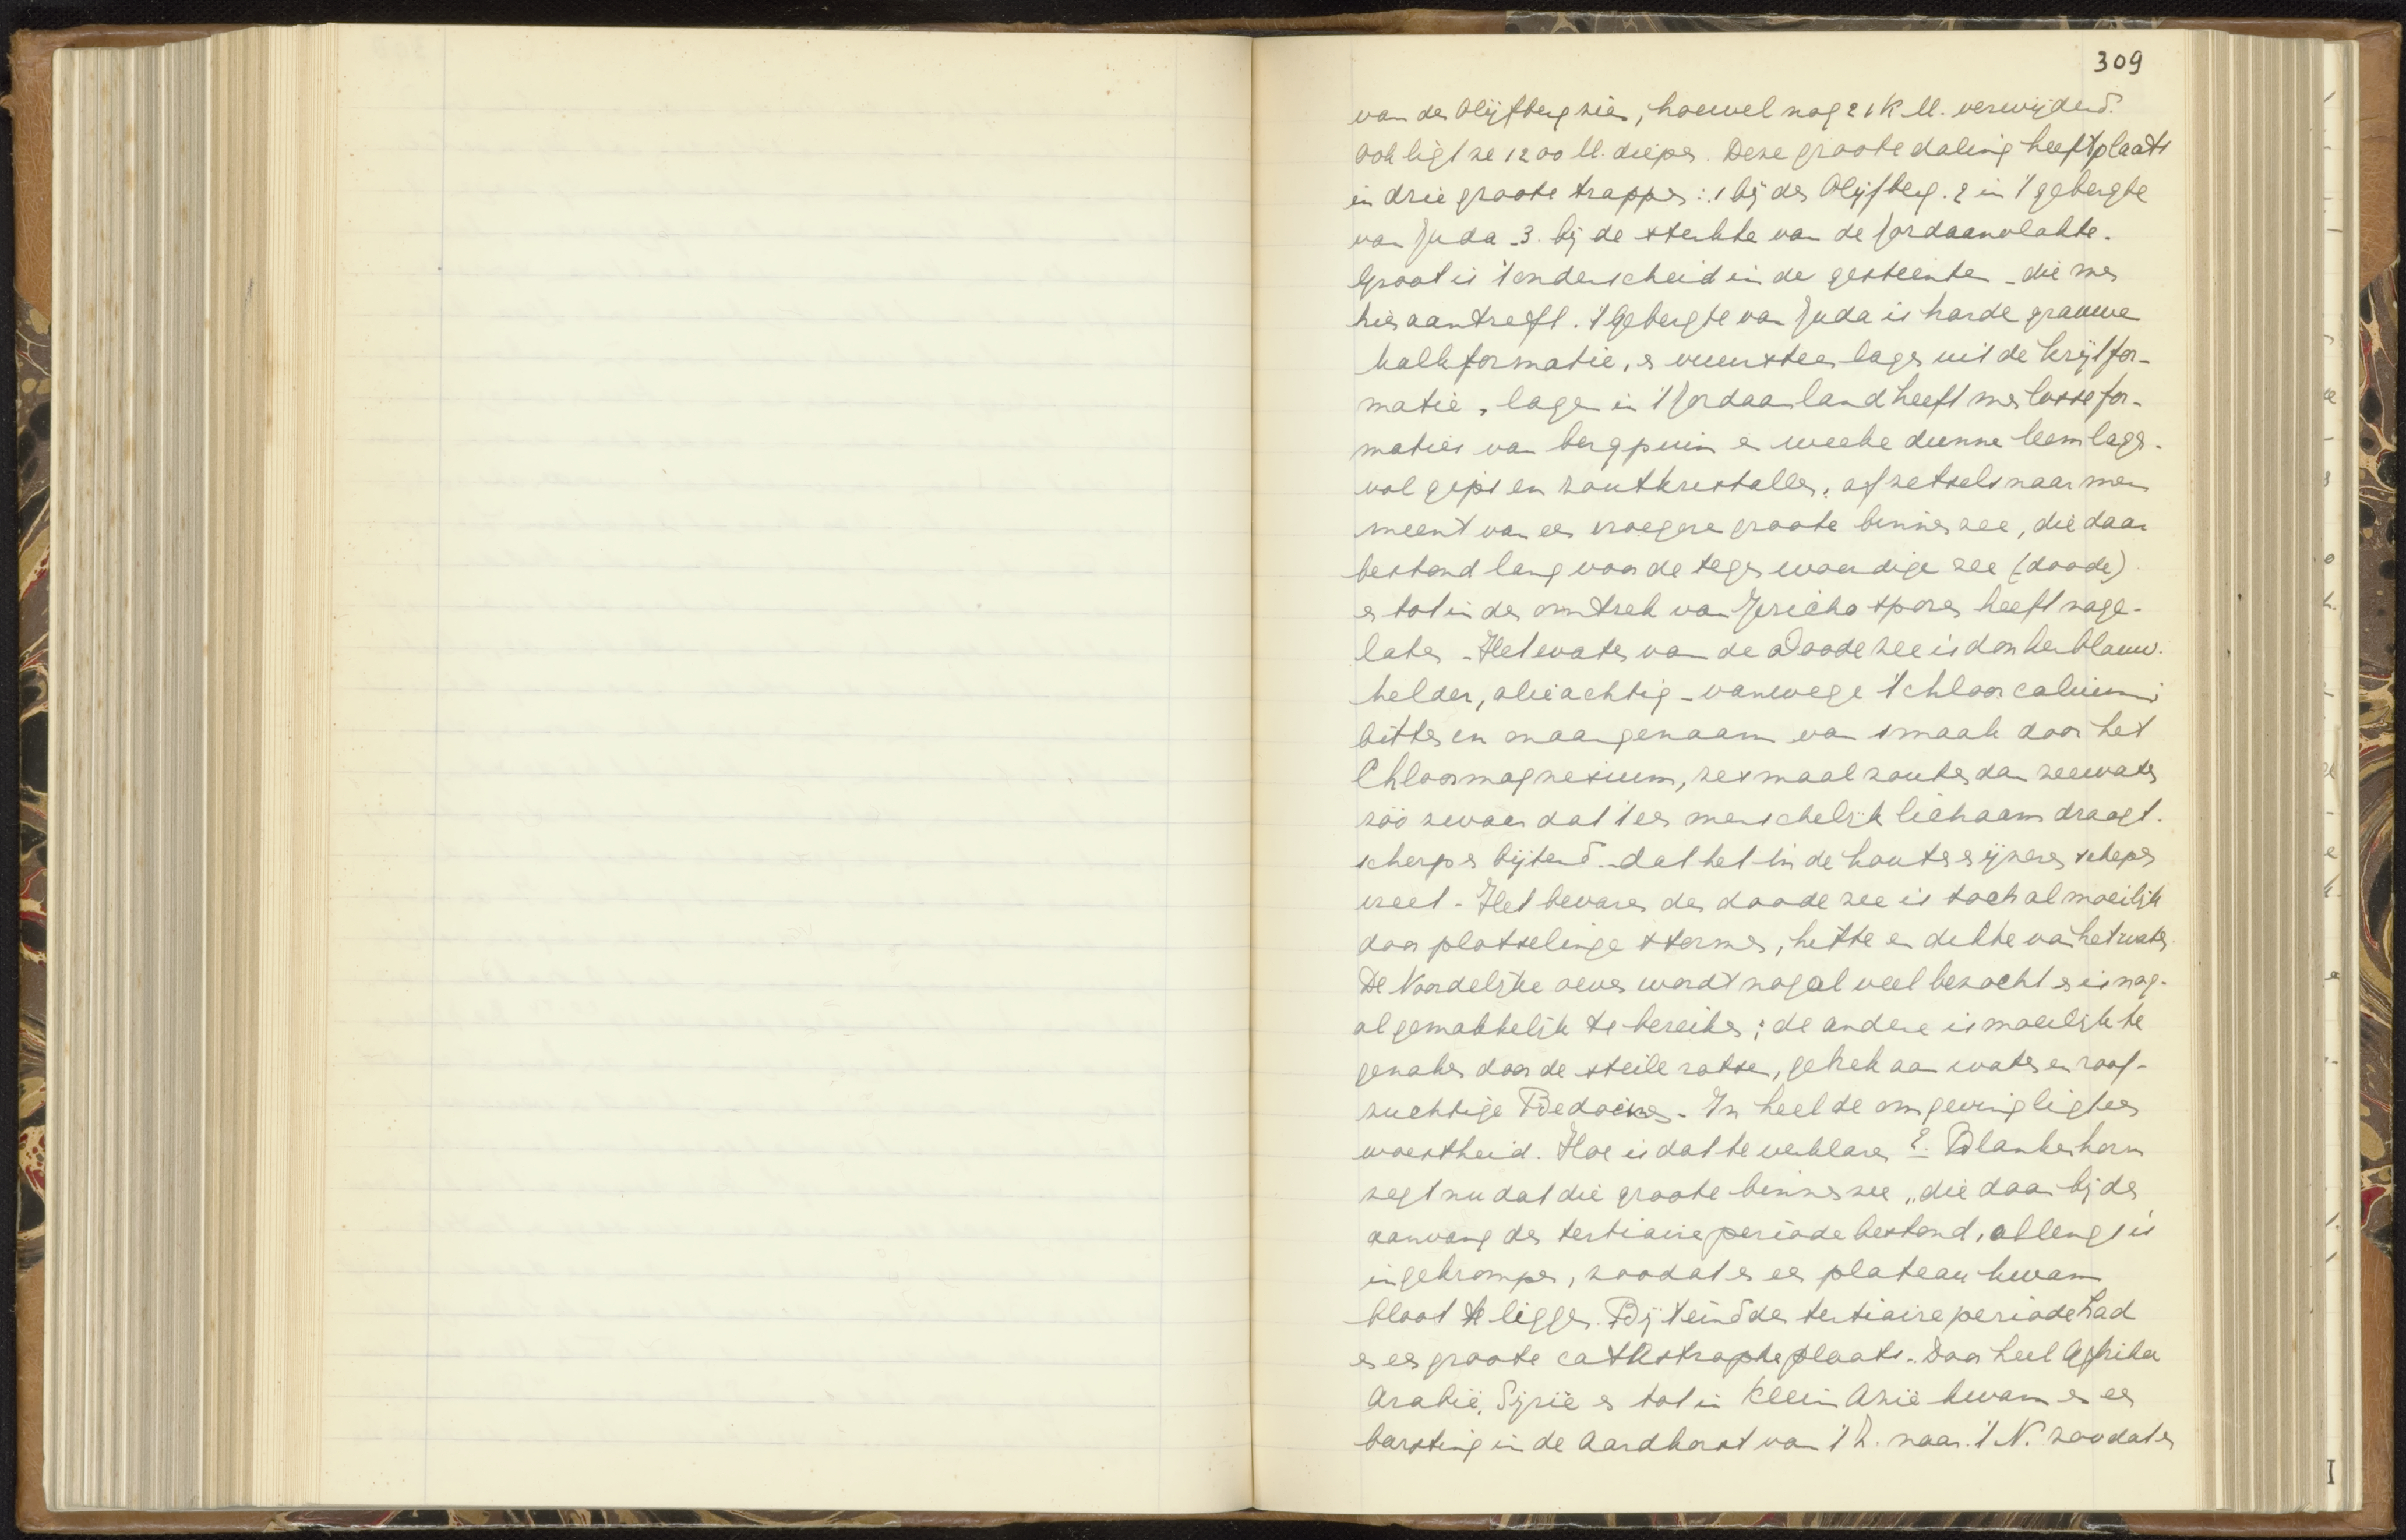 309
van den Olijfberg zien, hoewel nog 21 K.M. verwijderd.
Ook ligt ze 1200 M. dieper. Deze groote daling heeft plaats
in drie groote trappen: 1 bij den Olijfberg. 2 in 't gebergte
van Juda - 3. bij de sterkte van de Jordaanvlakte.
Groot is 't onderscheid in de gesteenten - die men
hier aantreft. 't Gebergte van Juda is harde grauwe
kalkformatie, en vuursteen lagen uit de krijtfor-
matie, lager in 't Jordaanland heeft men losse for-
maties van bergpuin en weeke dunne leemlagen -
vol gips en zoutkristallen, afzetsels naar men
meent van een vroegere groote binnenzee, die daar
bestond lang voor de tegenwoordige zee (doode)
en tot in den omtrek van Jericho sporen heeft nage-
laten - Het water van de Doode zee is donkerblauw.
helder, olieachtig - vanwege 't chloorcalcium;
bitter en onaangenaam van smaak door het
Chloormagnesium, zesmaal zouter dan zeewater
zóó zwaar dat 't een menschelijk lichaam draagt.
scherp en bijtend - dat het in de houten en ijzeren schepen
vreet - Het bevaren der doode zee is toch al moeilijk
door plotselinge stormen, hitte en dikte van het water.
De Noordelijke oever wordt nogal veel bezocht en is nog-
al gemakkelijk te bereiken; de andere is moeilijk te
genaken door de steile rotsen, gebrek aan water en roof-
zuchtige Bedoeinen - In heel de omgeving ligt een
woestheid. Hoe is dat te verklaren?. Blankenhorn
zegt nu dat die groote binnenzee „die daar bij den
aanvang der tertiaire periode bestond, allengs is
ingekrompen, zoodat er een plateau kwam
bloot te liggen. Bij 't eind der tertiaire periode had
er een groote catastrophe plaats. Door heel Afrika
Arabië, Syrië en tot in Klein Azië kwam er een
barsting in de aardkorst van 't Z. naar 't N. zoodat er